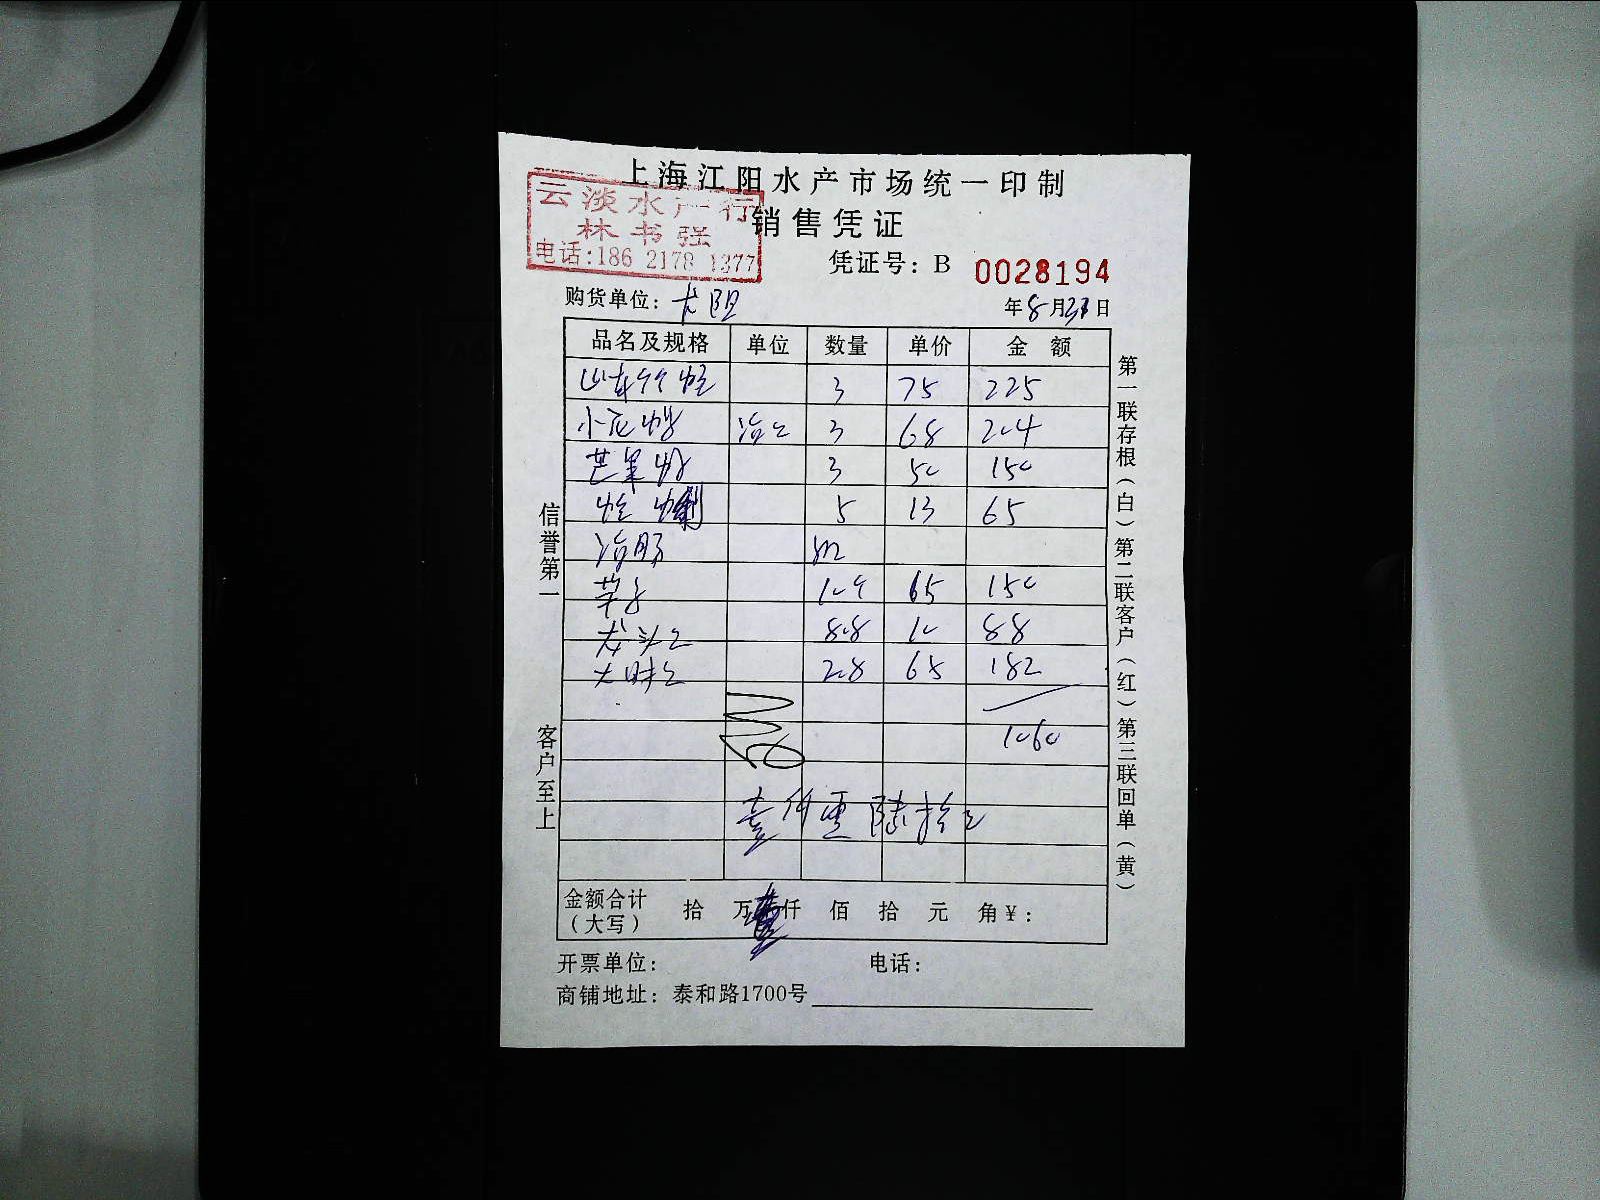 上海江阳水产市场统一印制
云淡水产行
林书强
电话:186 2178 1377
销售凭证
凭证号：B 0028194
购货单位：
年8月31日
品名及规格 单位 数量 单价 金额
山东 3 75 225
小花 3 68 204
芒果 3 50 150
5 13 65
65 150
龙头 8.8 10 88
大明 2.8 65 182
1060
壹仟零陆拾元
金额合计（大写） 拾 万 仟 佰 拾 元 角 ¥：
开票单位： 电话：
商铺地址：泰和路1700号
信誉第一
客户至上
第一联存根（白）第二联客户（红）第三联回单（黄）